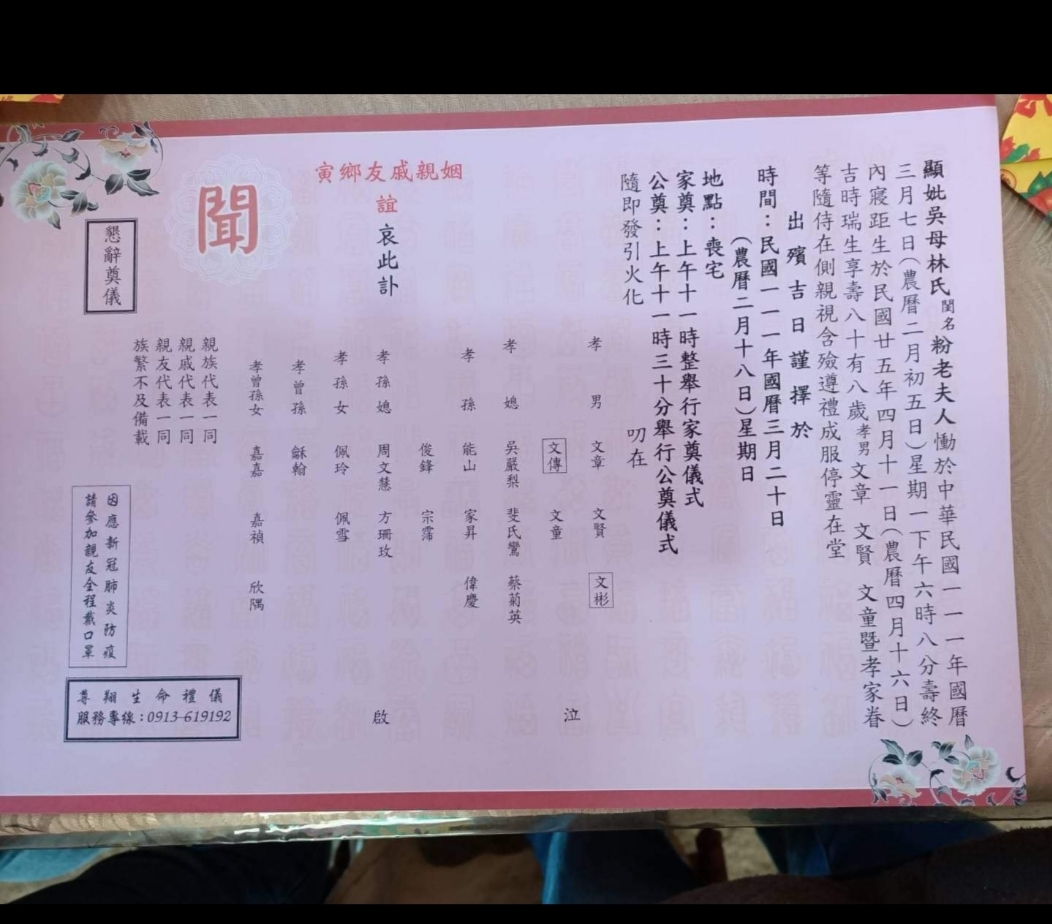 顯妣吳母林氏閨名粉老夫人慟於中華民國一一一年國曆
三月七日(農曆二月初五日)星期一下午六時八分壽終
內寢距生於民國廿五年四月十一日(農曆四月十六日)
吉時瑞生享壽八十有八歲孝男文章 文賢 文童暨孝家眷
等隨侍在側親視含殮遵禮成服停靈在堂
出殯吉日謹擇於
時間:民國一一一年國曆三月二十日
(農曆二月十八日)星期日
地點:喪宅
家奠:上午十一時整舉行家奠儀式
公奠:上午十一時三十分舉行公奠儀式
隨即發引火化
叨在
孝男 文章 文賢 文彬
文傳 文童 泣
孝媳 吳嚴梨 斐氏鸞 蔡菊英
孝孫 能山 家昇 偉慶
俊鋒 宗霈
孝孫媳 周文慧 方珊玫 啟
孝孫女 佩玲 佩雪
孝曾孫 龢翰
孝曾孫女 嘉嘉 嘉禎 欣隅
親族代表一同
親戚代表一同
親友代表一同
族繁不及備載
寅鄉友戚親姻
誼哀此訃
聞
懇辭奠儀
因應新冠肺炎防疫
請參加親友全程戴口罩
尊翔生命禮儀
服務專線:0913-619192